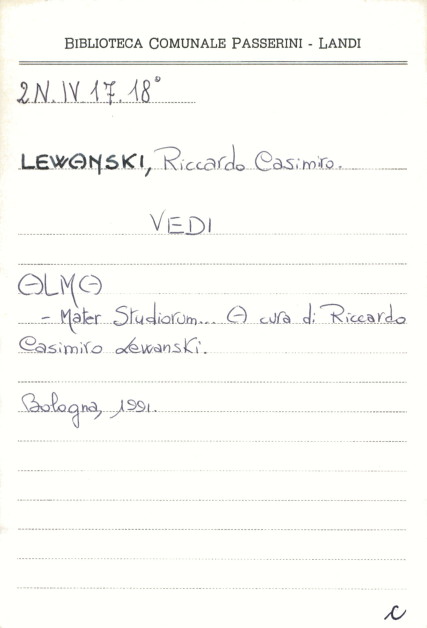 BIBLIOTECA COMUNALE PASSERINI - LANDI
2N.IV.17.18°
LEWANSKI, Riccardo Casimiro.
VEDI
ALMA
- Mater Studiorum... A cura di Riccardo
Casimiro Lewanski.
Bologna, 1991.
c